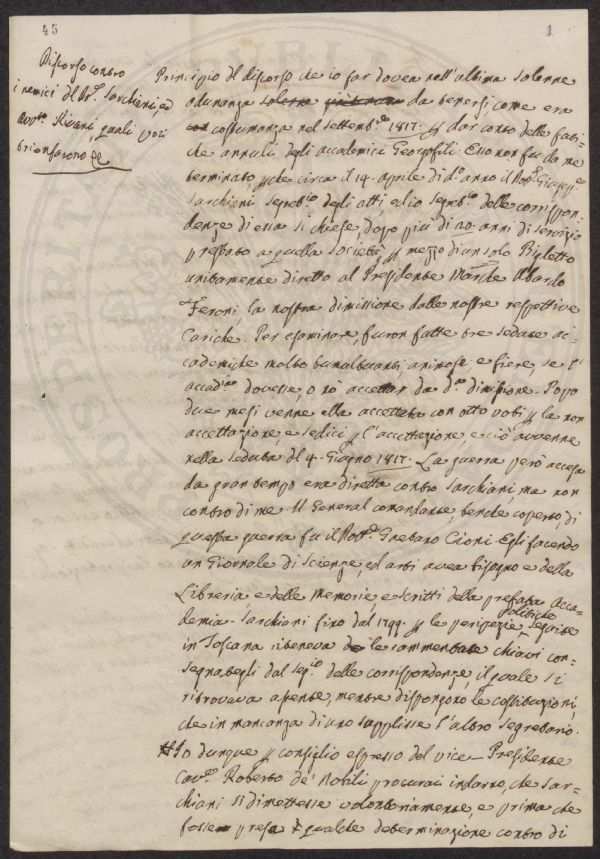 45
1
Discorso contro
i nemici del Dr. Sarchiani, ed
Avvto. Rivani, quali poi
trionfarono
Principio del discorso che io far dovea nell'altima solenne
adunanza solenne da tenersi come era
costumanza nel settembre 1817. p dar conto delle fati-
che annuli degli accademici Georgofili. Esso non fu da me
terminato, pche circa il 14. aprile di do. anno il Dott. Giuseppe
Sarchiani segreto. degli atti, ed io segreto. delle corrispon-
denze di essa si chiese, dopo più di 20. anni di servizio
prestato a quella società, p mezzo di un solo Biglietto
unitamente diretto al Presidente March. Ubaldo
Feroni, la nostra dimissione dalle nostre respettive
Cariche. Per esaminare, furon fatte tre sedute ac-
cademiche molto tumultuanti, animose, e fiere, se l'
accadia dovesse, o nò accettar da do. dimissione. Dopo
due mesi venne ella accettata con otto voti p la non
accettazione, e sedici p l'accettazione, e ciò avvenne
nella seduta del 4. Giugno 1817. La guerra però accesa
da gran tempo era diretta contro Sarchiani, ma non
contro di me. Il General comandante, benche coperto, di
questa guerra fu il Dott. Gaetano Cioni. Egli facendo
un Giornale di Scienze, ed arti avea bisogno e della
Libreria, e delle Memorie, e scritti della prefata Acca-
demia. Sarchiani fino dal 1799. p le peripezie politiche seguite
in Toscana riteneva le rammentate chiavi con-
segnategli dal sego. delle corrispondenze, il quale si
ritrovava assente, mentre dispongono le costituzioni,
che in mancanza di uno supplisse l'altro segretario.
# Io dunque p consiglio espresso del vice-Presidente
Cavre. Roberto de' Nobili procurai indarno, che Sar-
chiani si dimettesse volontariamente, e prima che
fosse presa qualche determinazione contro di